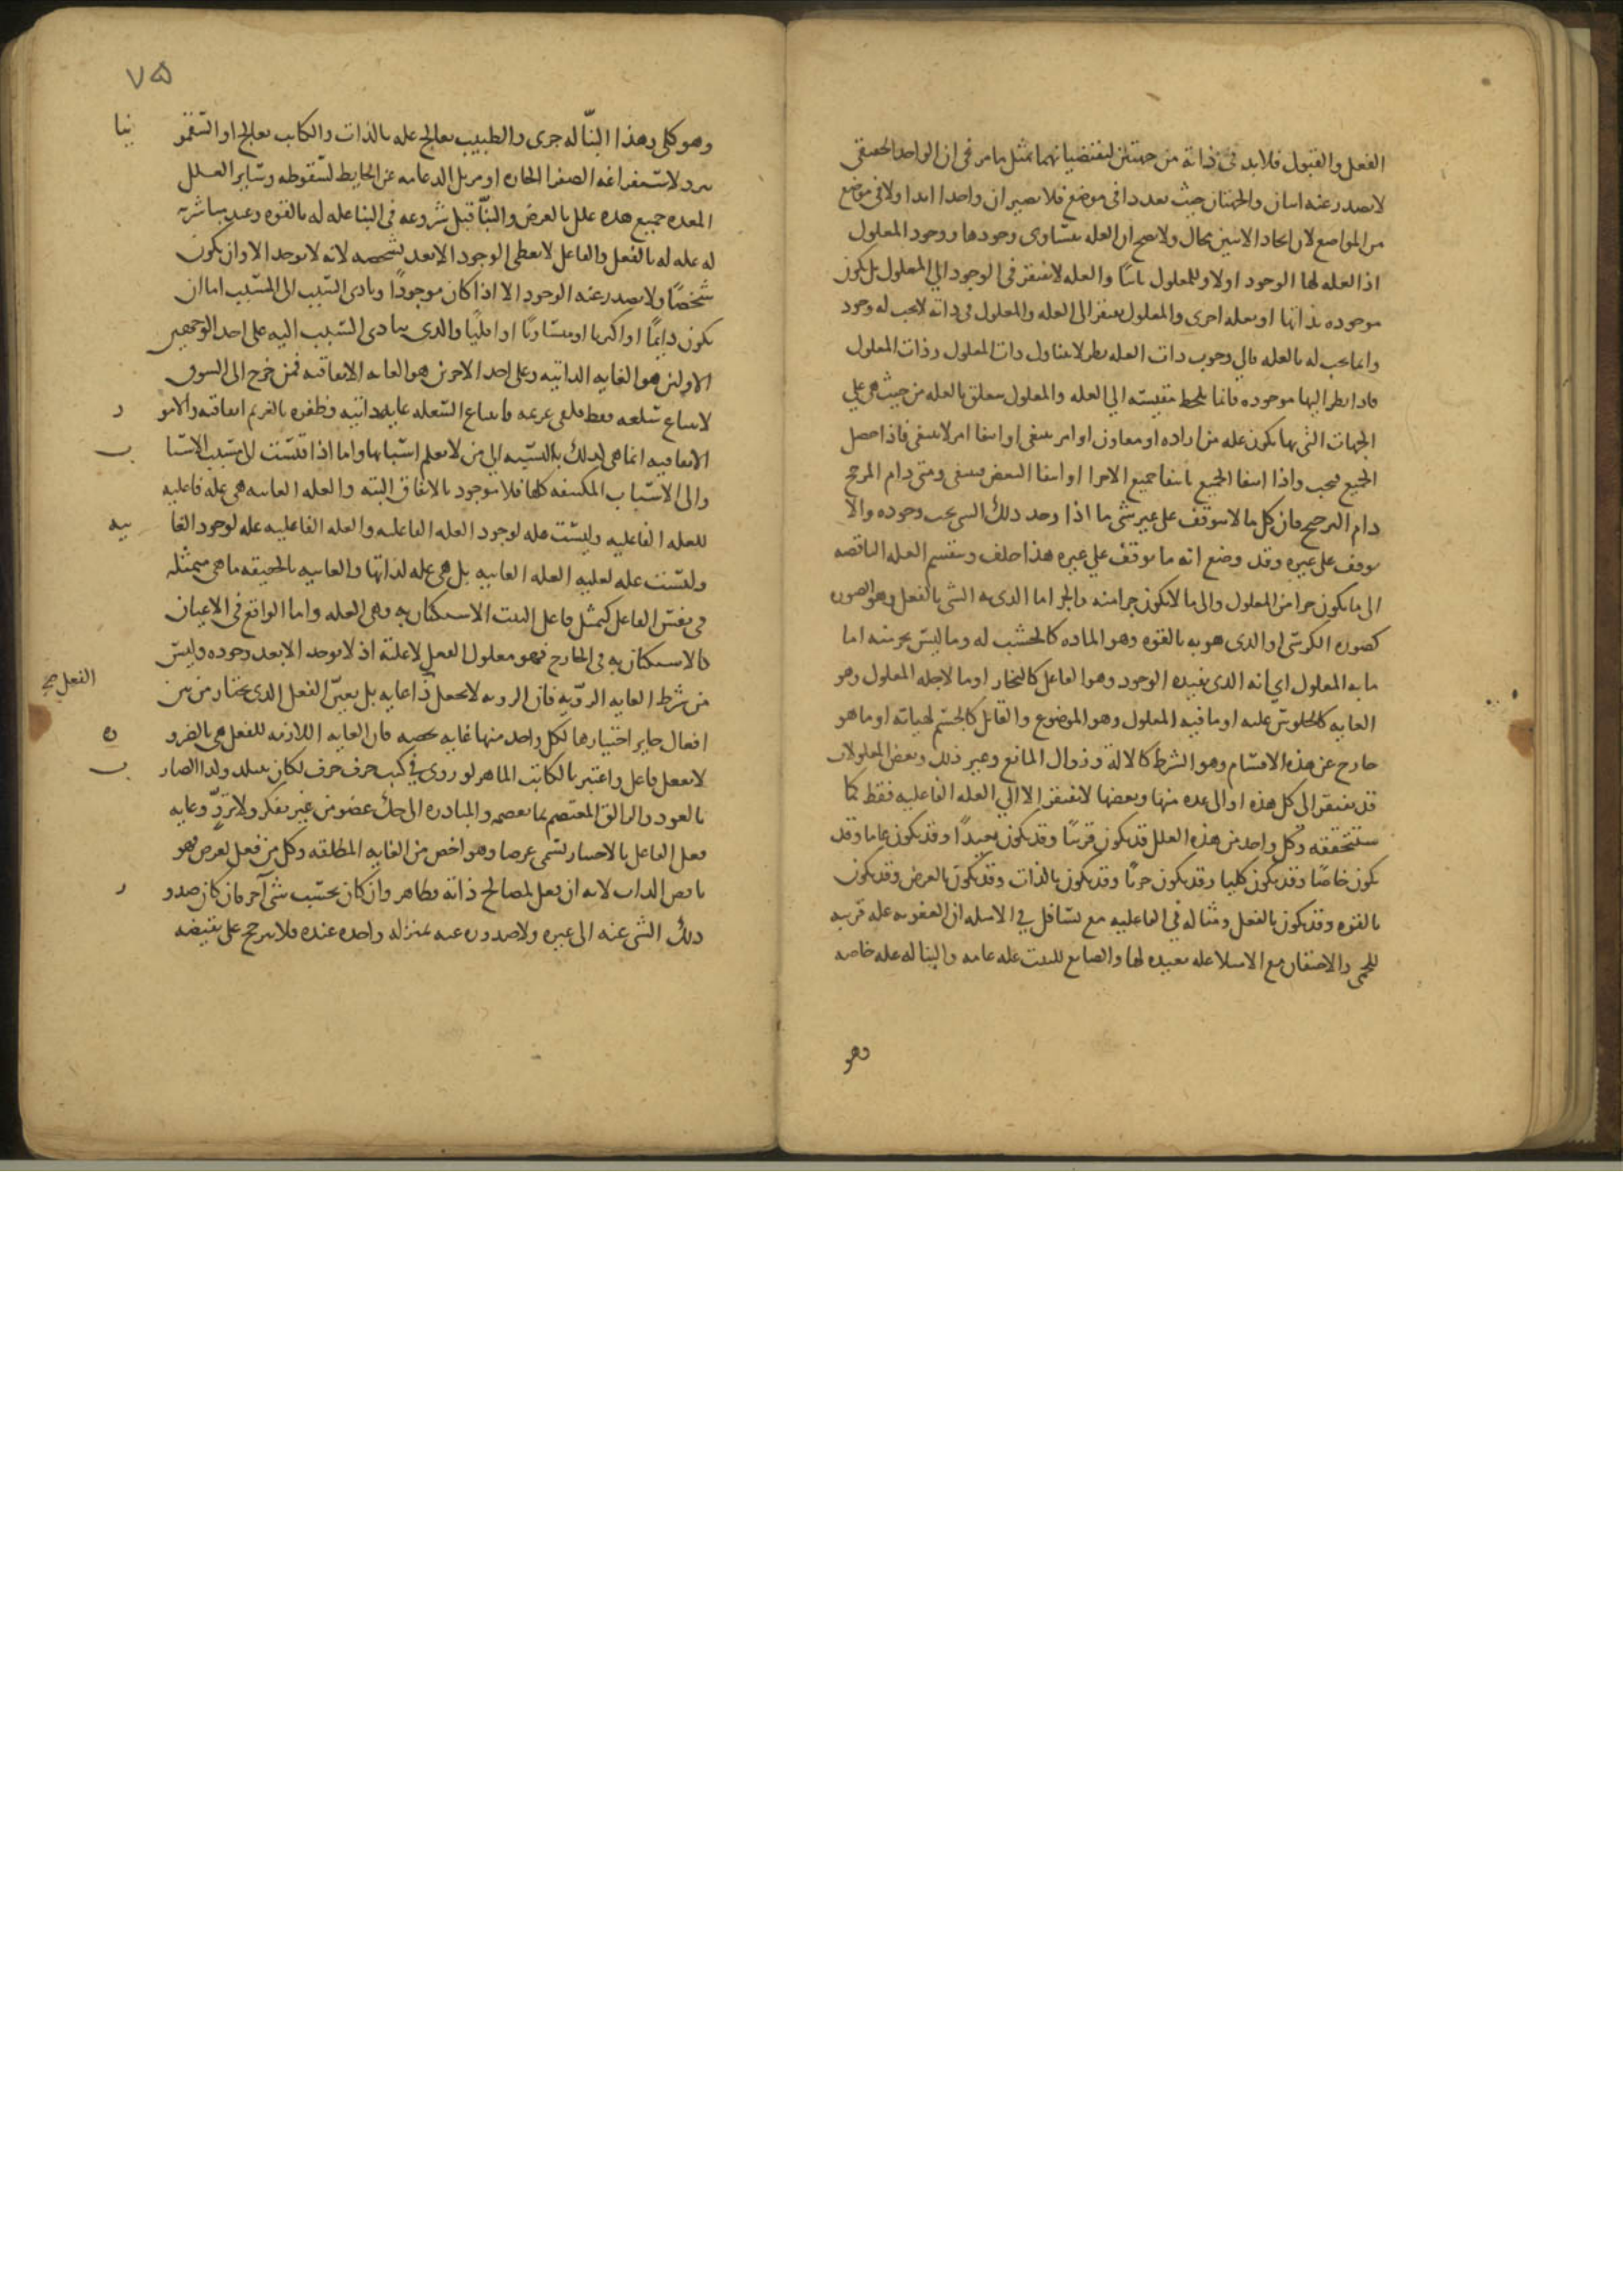 الفعل والقبول فلا بد في ذاته من جهتين تقتضيانهما بمثل ما مر في ان الواحد الحقيقي
لا يصدر عنه اثنان والجهتان حيث تعددا في موضع فلا تصيران واحدا ابدا ولا في موضع
من المواضع لان اتحاد الاثنين محال ولا يصح ان العله تساوى وجودها ووجود المعلول
اذ العله لها الوجود اولا وللمعلول ثانيا والعله لا تفتقر في الوجود الي المعلول بل تكون
موجوده بذاتها او بعله اخرى والمعلول يفتقر الى العله والمعلول في ذاته لا يجب له وجود
وانما يجب له بالعله فالي وجوب ذات العله نظر لا يتناول ذات المعلول وذات المعلول
فاذا نظر اليها موجوده فانما يلحظ مقيسته الي العله والمعلول متعلق بالعله من حيث هي علي
الجهات التي بها تكون عله من اراده او معاون او امر ينبغي او انتفا امر لا ينبغي فاذا حصل
الجميع فيجب واذا انتفا الجميع بانتفا جميع الاجزا او انتفا البعض فينتفى ومتى دام المرجح
دام الترجح فان كل ما لا يتوقف على غير شى ما اذا وجد ذلك الشي يجب وجوده والا
توقف على غيره وقد وضع انه ما توقف علي غيره هذا خلف وتنقسم العله الناقصه
الى ما يكون جزا من المعلول والى ما لا يكون جزا منه والجز اما الذى به الشى بالفعل وهو الصوره
كصوره الكرسى او الذى هو به بالقوه وهو الماده كالخشب له وما ليس بجز منه اما
ما به المعلول اي انه الذى يفيده الوجود وهو الفاعل كالنجار او ما لاجله المعلول وهو
الغايه كالجلوس عليه او ما فيه المعلول وهو الموضوع والقابل كالجسم لهياته او ما هو
خارج عن هذه الاقسام وهو الشرط كالالة وزوال المانع وغير ذلك وبعض المعلولات
قد يفتقر الى كل هذه او الى عده منها وبعضها لا تفتقر الا الي العله الفاعليه فقط كما
ستتحققه وكل واحد من هذه العلل قد يكون قريبا وقد يكون بعيدا وقد يكون عاما وقد
يكون خاصا وقد يكون كليا وقد يكون جزيا وقد يكون بالذات وقد يكون بالعرض وقد يكون
بالقوه وقد يكون بالفعل ومثاله في الفاعليه مع تساهل في الامثله ان العفونه عله قريبه
للحمى والاحتقان مع الامتلا عله بعيده لها والصانع للبيت عله عامه والبنا له عله خاصه
وهو
٧٥
وهو كلى وهذا البنّا له جزى والطبيب يعالج عله بالذات والكاتب يعالج او السقمونيا
يبرد لاستفراغه الصفرا الحاره او مزيل الدعامه عن الحايط لسقوطه وساير العلل
المعده جميع هذه علل بالعرض والبنّا قبل شروعه في البنا عله له بالقوه وعند مباشرته
له عله له بالفعل والفاعل لا يعطى الوجود الا بعد تشخصه لانه لا يوجد الا وان يكون
شخصًا ولا يصدر عنه الوجود الا اذا كان موجودًا وتادى السبب الى المسبب اما ان
يكون دايمًا او اكثريا او متساويًا او اقليًا والذى يتادى السبب اليه على احد الوجهين
الاولين هو الغايه الذاتيه وعلى احد الاخرين هو الغايه الاتفاقيه فمن خرج الى السوق
لابتياع سلعه فقط فلقى غريمه فابتياع السلعه غايه ذاتيه وظفره بالغريم اتفاقيه والامور
الاتفاقيه انما هى كذلك بالنسبه الى من لا يعلم اسبابها واما اذا قيست الى مسبب الاسباب
والى الاسباب المكتنفه كلها فلا موجود بالاتفاق البته والعله الغاييه هي عله فاعليه
للعله الفاعليه وليست عله لوجود العله الفاعليه والعله الفاعليه عله لوجود الغاييه
وليست عله لعليه العله الغاييه بل هى عله لذاتها والغاييه بالحقيقه ما هى متمثله
في نفس الفاعل كتمثل فاعل البيت الاستكنان به وهى العله واما الواقع في الاعيان
كالاستكنان به في الخارج فهو معلول الفعل لا علته اذ لا يوجد الا بعد وجوده وليس
من شرط الغايه الرويّه فان الرويه لا تجعل الفعل صح ذا غايه بل تعيّن الفعل الذى يختار من بين
افعال جايز اختيارها لكل واحد منها غايه تخصه فان الغايه اللازمه للفعل هي بالضروره
لا بفعل فاعل واعتبر بالكاتب الماهر لو روى في كتب حرف حرف لكان يتبلد ولذا الضارب
بالعود والزالق المعتصم بما يعصمه والمبادره الى حك عضو من غير تفكر ولا تروٍّ وغايه
فعل الفاعل بالاختيار تسمى غرضا وهو اخص من الغايه المطلقه وكل من فعل لغرض فهو
ناقص الذات لانه ان فعل لمصالح ذاته فظاهر وان كان بحسب شى آخر فان كان صدور
ذلك الشى عنه الى غيره ولا صدوره عنه بمنزله واحده عنده فلا يترجح على نقيضه